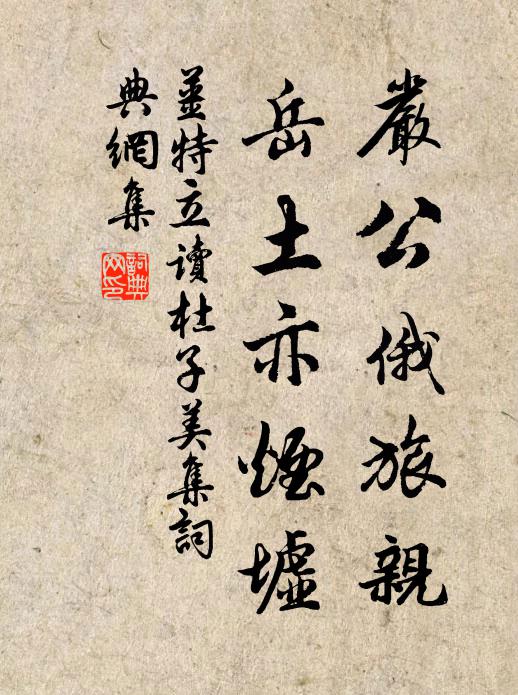 嚴公俄旅親
岳土亦煙墟
姜特立讀杜子美集詞
典網集
詞典網印